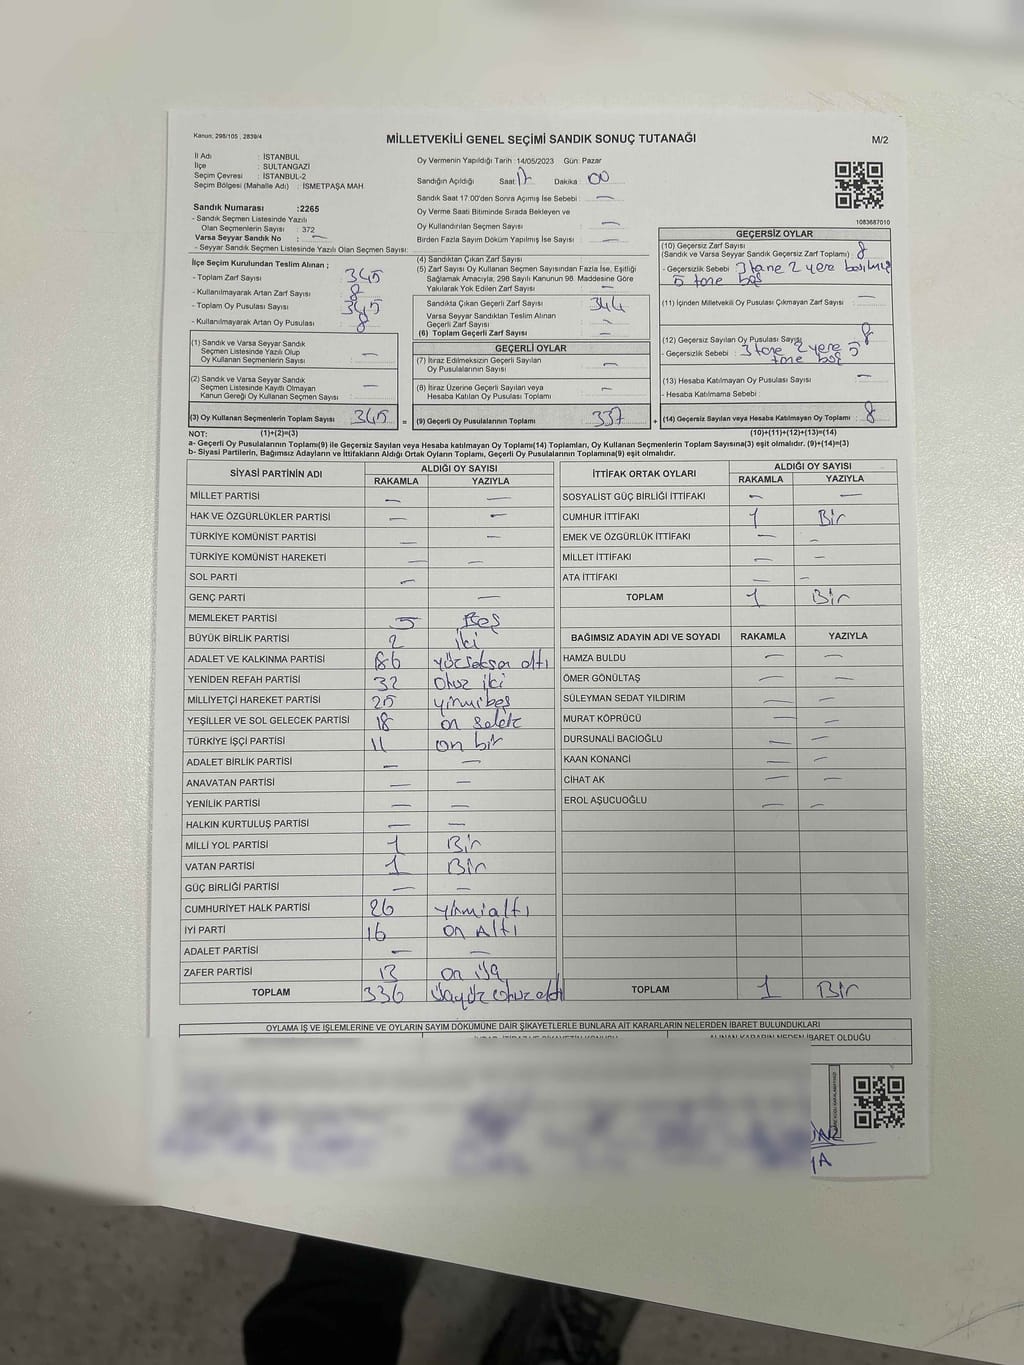 Kanun; 298/105 , 2839/4
MİLLETVEKİLİ GENEL SEÇİMİ SANDIK SONUÇ TUTANAĞI
M/2
İl Adı : İSTANBUL
İlçe : SULTANGAZİ
Seçim Çevresi : İSTANBUL-2
Seçim Bölgesi (Mahalle Adı) : İSMETPAŞA MAH.
Sandık Numarası :2265
- Sandık Seçmen Listesinde Yazılı
Olan Seçmenlerin Sayısı : 372
Varsa Seyyar Sandık No : —
- Seyyar Sandık Seçmen Listesinde Yazılı Olan Seçmen Sayısı:
Oy Vermenin Yapıldığı Tarih :14/05/2023 Gün: Pazar
Sandığın Açıldığı Saat: 17 Dakika : 00
Sandık Saat 17.00'den Sonra Açımış İse Sebebi : —
Oy Verme Saati Bitiminde Sırada Bekleyen ve
Oy Kullandırılan Seçmen Sayısı : —
Birden Fazla Sayım Döküm Yapılmış İse Sayısı : —
1083687010
İlçe Seçim Kurulundan Teslim Alınan ;
- Toplam Zarf Sayısı : 345
- Kullanılmayarak Artan Zarf Sayısı : 8
- Toplam Oy Pusulası Sayısı : 345
- Kullanılmayarak Artan Oy Pusulası : 8
(1) Sandık ve Varsa Seyyar Sandık
Seçmen Listesinde Yazılı Olup
Oy Kullanan Seçmenlerin Sayısı : —
(2) Sandık ve Varsa Seyyar Sandık
Seçmen Listesinde Kayıtlı Olmayan
Kanun Gereği Oy Kullanan Seçmen Sayısı : —
(3) Oy Kullanan Seçmenlerin Toplam Sayısı : 345
(4) Sandıktan Çıkan Zarf Sayısı :
(5) Zarf Sayısı Oy Kullanan Seçmen Sayısından Fazla İse, Eşitliği
Sağlamak Amacıyla; 298 Sayılı Kanunun 98. Maddesine Göre
Yakılarak Yok Edilen Zarf Sayısı : —
Sandıkta Çıkan Geçerli Zarf Sayısı : 344
Varsa Seyyar Sandıktan Teslim Alınan
Geçerli Zarf Sayısı : —
(6) Toplam Geçerli Zarf Sayısı : —
GEÇERLİ OYLAR
(7) İtiraz Edilmeksizin Geçerli Sayılan
Oy Pusulalarının Sayısı : —
(8) İtiraz Üzerine Geçerli Sayılan veya
Hesaba Katılan Oy Pusulaları Toplamı : —
= (9) Geçerli Oy Pusulalarının Toplamı : 337
GEÇERSİZ OYLAR
(10) Geçersiz Zarf Sayısı
(Sandık ve Varsa Seyyar Sandık Geçersiz Zarf Toplamı) : 8
- Geçersizlik Sebebi : 3 tane 2 yere
5 tane boş
(11) İçinden Milletvekili Oy Pusulası Çıkmayan Zarf Sayısı : —
(12) Geçersiz Sayılan Oy Pusulası Sayısı : 8
- Geçersizlik Sebebi : 3 tane 2 yere 5
tane boş
(13) Hesaba Katılmayan Oy Pusulası Sayısı : —
- Hesaba Katılmama Sebebi :
+ (14) Geçersiz Sayılan veya Hesaba Katılmayan Oy Toplamı : 8
NOT: (1)+(2)=(3) (10)+(11)+(12)+(13)=(14)
a- Geçerli Oy Pusulalarının Toplamı(9) ile Geçersiz Sayılan veya Hesaba katılmayan Oy Toplamı(14) Toplamları, Oy Kullanan Seçmenlerin Toplam Sayısına(3) eşit olmalıdır. (9)+(14)=(3)
b- Siyasi Partilerin, Bağımsız Adayların ve İttifakların Aldığı Ortak Oyların Toplamı, Geçerli Oy Pusulalarının Toplamına(9) eşit olmalıdır.
SİYASİ PARTİNİN ADI ALDIĞI OY SAYISI
RAKAMLA YAZIYLA
MİLLET PARTİSİ — —
HAK VE ÖZGÜRLÜKLER PARTİSİ — —
TÜRKİYE KOMÜNİST PARTİSİ — —
TÜRKİYE KOMÜNİST HAREKETİ — —
SOL PARTİ —
GENÇ PARTİ —
MEMLEKET PARTİSİ 5 Beş
BÜYÜK BİRLİK PARTİSİ 2 iki
ADALET VE KALKINMA PARTİSİ 86 yücseksen altı
YENİDEN REFAH PARTİSİ 32 Otuz iki
MİLLİYETÇİ HAREKET PARTİSİ 25 yirmibeş
YEŞİLLER VE SOL GELECEK PARTİSİ 18 on sekiz
TÜRKİYE İŞÇİ PARTİSİ 11 on bir
ADALET BİRLİK PARTİSİ — —
ANAVATAN PARTİSİ — —
YENİLİK PARTİSİ — —
HALKIN KURTULUŞ PARTİSİ — —
MİLLİ YOL PARTİSİ 1 Bir
VATAN PARTİSİ 1 Bir
GÜÇ BİRLİĞİ PARTİSİ — —
CUMHURİYET HALK PARTİSİ 26 yirmialtı
İYİ PARTİ 16 on Altı
ADALET PARTİSİ — —
ZAFER PARTİSİ 13 on üç
TOPLAM 336 üçyüz otuz altı
İTTİFAK ORTAK OYLARI ALDIĞI OY SAYISI
RAKAMLA YAZIYLA
SOSYALİST GÜÇ BİRLİĞİ İTTİFAKI — —
CUMHUR İTTİFAKI 1 Bir
EMEK VE ÖZGÜRLÜK İTTİFAKI — —
MİLLET İTTİFAKI — —
ATA İTTİFAKI — —
TOPLAM 1 Bir
BAĞIMSIZ ADAYIN ADI VE SOYADI RAKAMLA YAZIYLA
HAMZA BULDU — —
ÖMER GÖNÜLTAŞ — —
SÜLEYMAN SEDAT YILDIRIM — —
MURAT KÖPRÜCÜ — —
DURSUNALİ BACIOĞLU — —
KAAN KONANCİ — —
CİHAT AK — —
EROL AŞUCUOĞLU — —
TOPLAM 1 Bir
OYLAMA İŞ VE İŞLEMLERİNE VE OYLARIN SAYIM DÖKÜMÜNE DAİR ŞİKAYETLERLE BUNLARA AİT KARARLARIN NELERDEN İBARET BULUNDUKLARI
ALINAN KARARIN NEDEN İBARET OLDUĞU